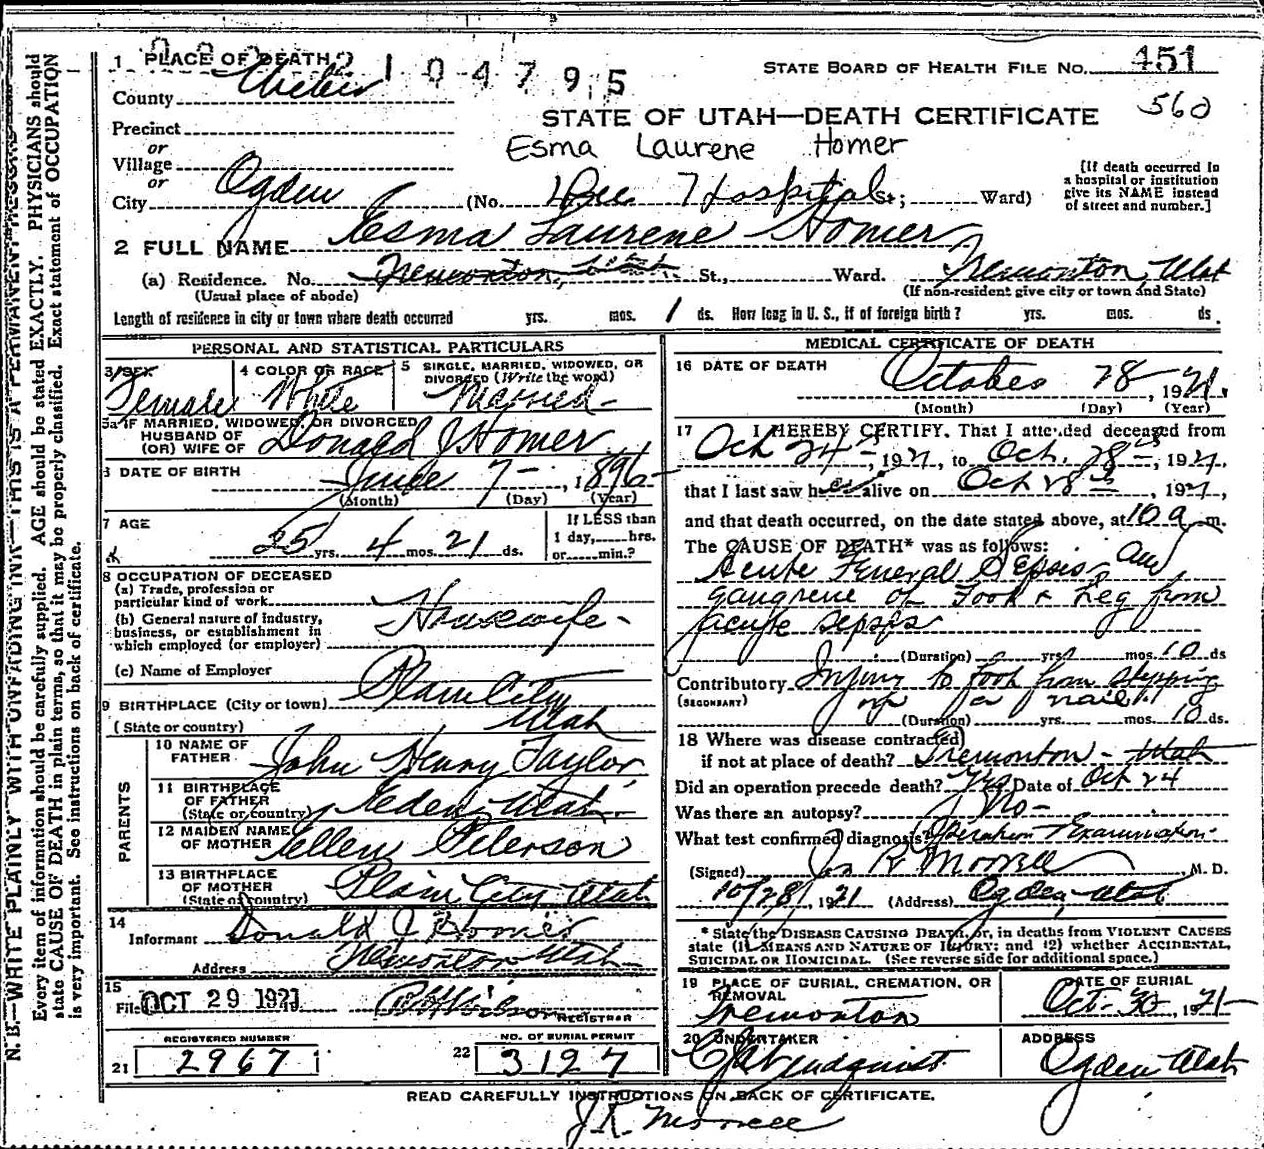 1 PLACE OF DEATH
2104795
STATE BOARD OF HEALTH FILE NO. 451
County Weber
560
STATE OF UTAH—DEATH CERTIFICATE
Precinct
or
Village
or
Esma Laurene Homer
[If death occurred in
a hospital or institution
give its NAME instead
of street and number.]
City Ogden (No. Dee Hospital St.; Ward)
2 FULL NAME Esma Laurene Homer
(a) Residence. No. Tremonton, Utah St., Ward. Tremonton Utah
(Usual place of abode) (If non-resident give city or town and State)
Length of residence in city or town where death occurred yrs. mos. 1 ds. How long in U. S., if of foreign birth? yrs. mos. ds.
PERSONAL AND STATISTICAL PARTICULARS
3 SEX Female
4 COLOR OR RACE White
5 SINGLE, MARRIED, WIDOWED, OR
DIVORCED (Write the word)
Married
5a IF MARRIED, WIDOWED, OR DIVORCED
HUSBAND OF
(OR) WIFE OF Donald J Homer
6 DATE OF BIRTH June 7 - , 1896
(Month) (Day) (Year)
7 AGE
25 yrs. 4 mos. 21 ds.
If LESS than
1 day,.....hrs.
or.....min.?
8 OCCUPATION OF DECEASED
(a) Trade, profession or
particular kind of work
(b) General nature of industry,
business, or establishment in
which employed (or employer)
Housewife -
(c) Name of Employer
9 BIRTHPLACE (City or town) Plain City
(State or country) Utah
PARENTS
10 NAME OF
FATHER John Henry Taylor
11 BIRTHPLACE
OF FATHER
(State or country) Eden, Utah.
12 MAIDEN NAME
OF MOTHER Ellen Peterson
13 BIRTHPLACE
OF MOTHER
(State or country) Plain City Utah
14
Informant Donald J Homer
Address Tremonton Utah
15
Filed OCT 29 1921
REGISTRAR
REGISTERED NUMBER
21 2967
NO. OF BURIAL PERMIT
22 3127
MEDICAL CERTIFICATE OF DEATH
16 DATE OF DEATH
October 28, 1921.
(Month) (Day) (Year)
17 I HEREBY CERTIFY, That I attended deceased from
Oct 24th, 1921, to Oct. 28th, 1921,
that I last saw her alive on Oct 28th, 1921,
and that death occurred, on the date stated above, at 10 a m.
The CAUSE OF DEATH* was as follows:
Acute General Sepsis and
gangrene of Foot & Leg from
acute sepsis
(Duration) yrs mos. 10 ds
Contributory Injury to foot from stepping
(SECONDARY) on a nail.
(Duration) yrs. mos. 10 ds.
18 Where was disease contracted
if not at place of death? Tremonton - Utah
Did an operation precede death? Yes Date of Oct 24
Was there an autopsy? No -
What test confirmed diagnosis? Operation & Examination.
(Signed) Jos R Morrell, M. D.
10/28/, 1921 (Address) Ogden, Utah
* State the DISEASE CAUSING DEATH, or, in deaths from VIOLENT CAUSES
state (1) MEANS AND NATURE OF INJURY; and (2) whether ACCIDENTAL,
SUICIDAL OR HOMICIDAL. (See reverse side for additional space.)
19 PLACE OF BURIAL, CREMATION, OR
REMOVAL
Tremonton
DATE OF BURIAL
Oct. 30, 1921
20 UNDERTAKER
Lindquist
ADDRESS
Ogden Utah
READ CAREFULLY INSTRUCTIONS ON BACK OF CERTIFICATE.
J. R. Morrell
N. B.—WRITE PLAINLY WITH UNFADING INK—THIS IS A PERMANENT RECORD
Every item of information should be carefully supplied. AGE should be stated EXACTLY. PHYSICIANS should
state CAUSE OF DEATH in plain terms, so that it may be properly classified. Exact statement of OCCUPATION
is very important. See instructions on back of certificate.